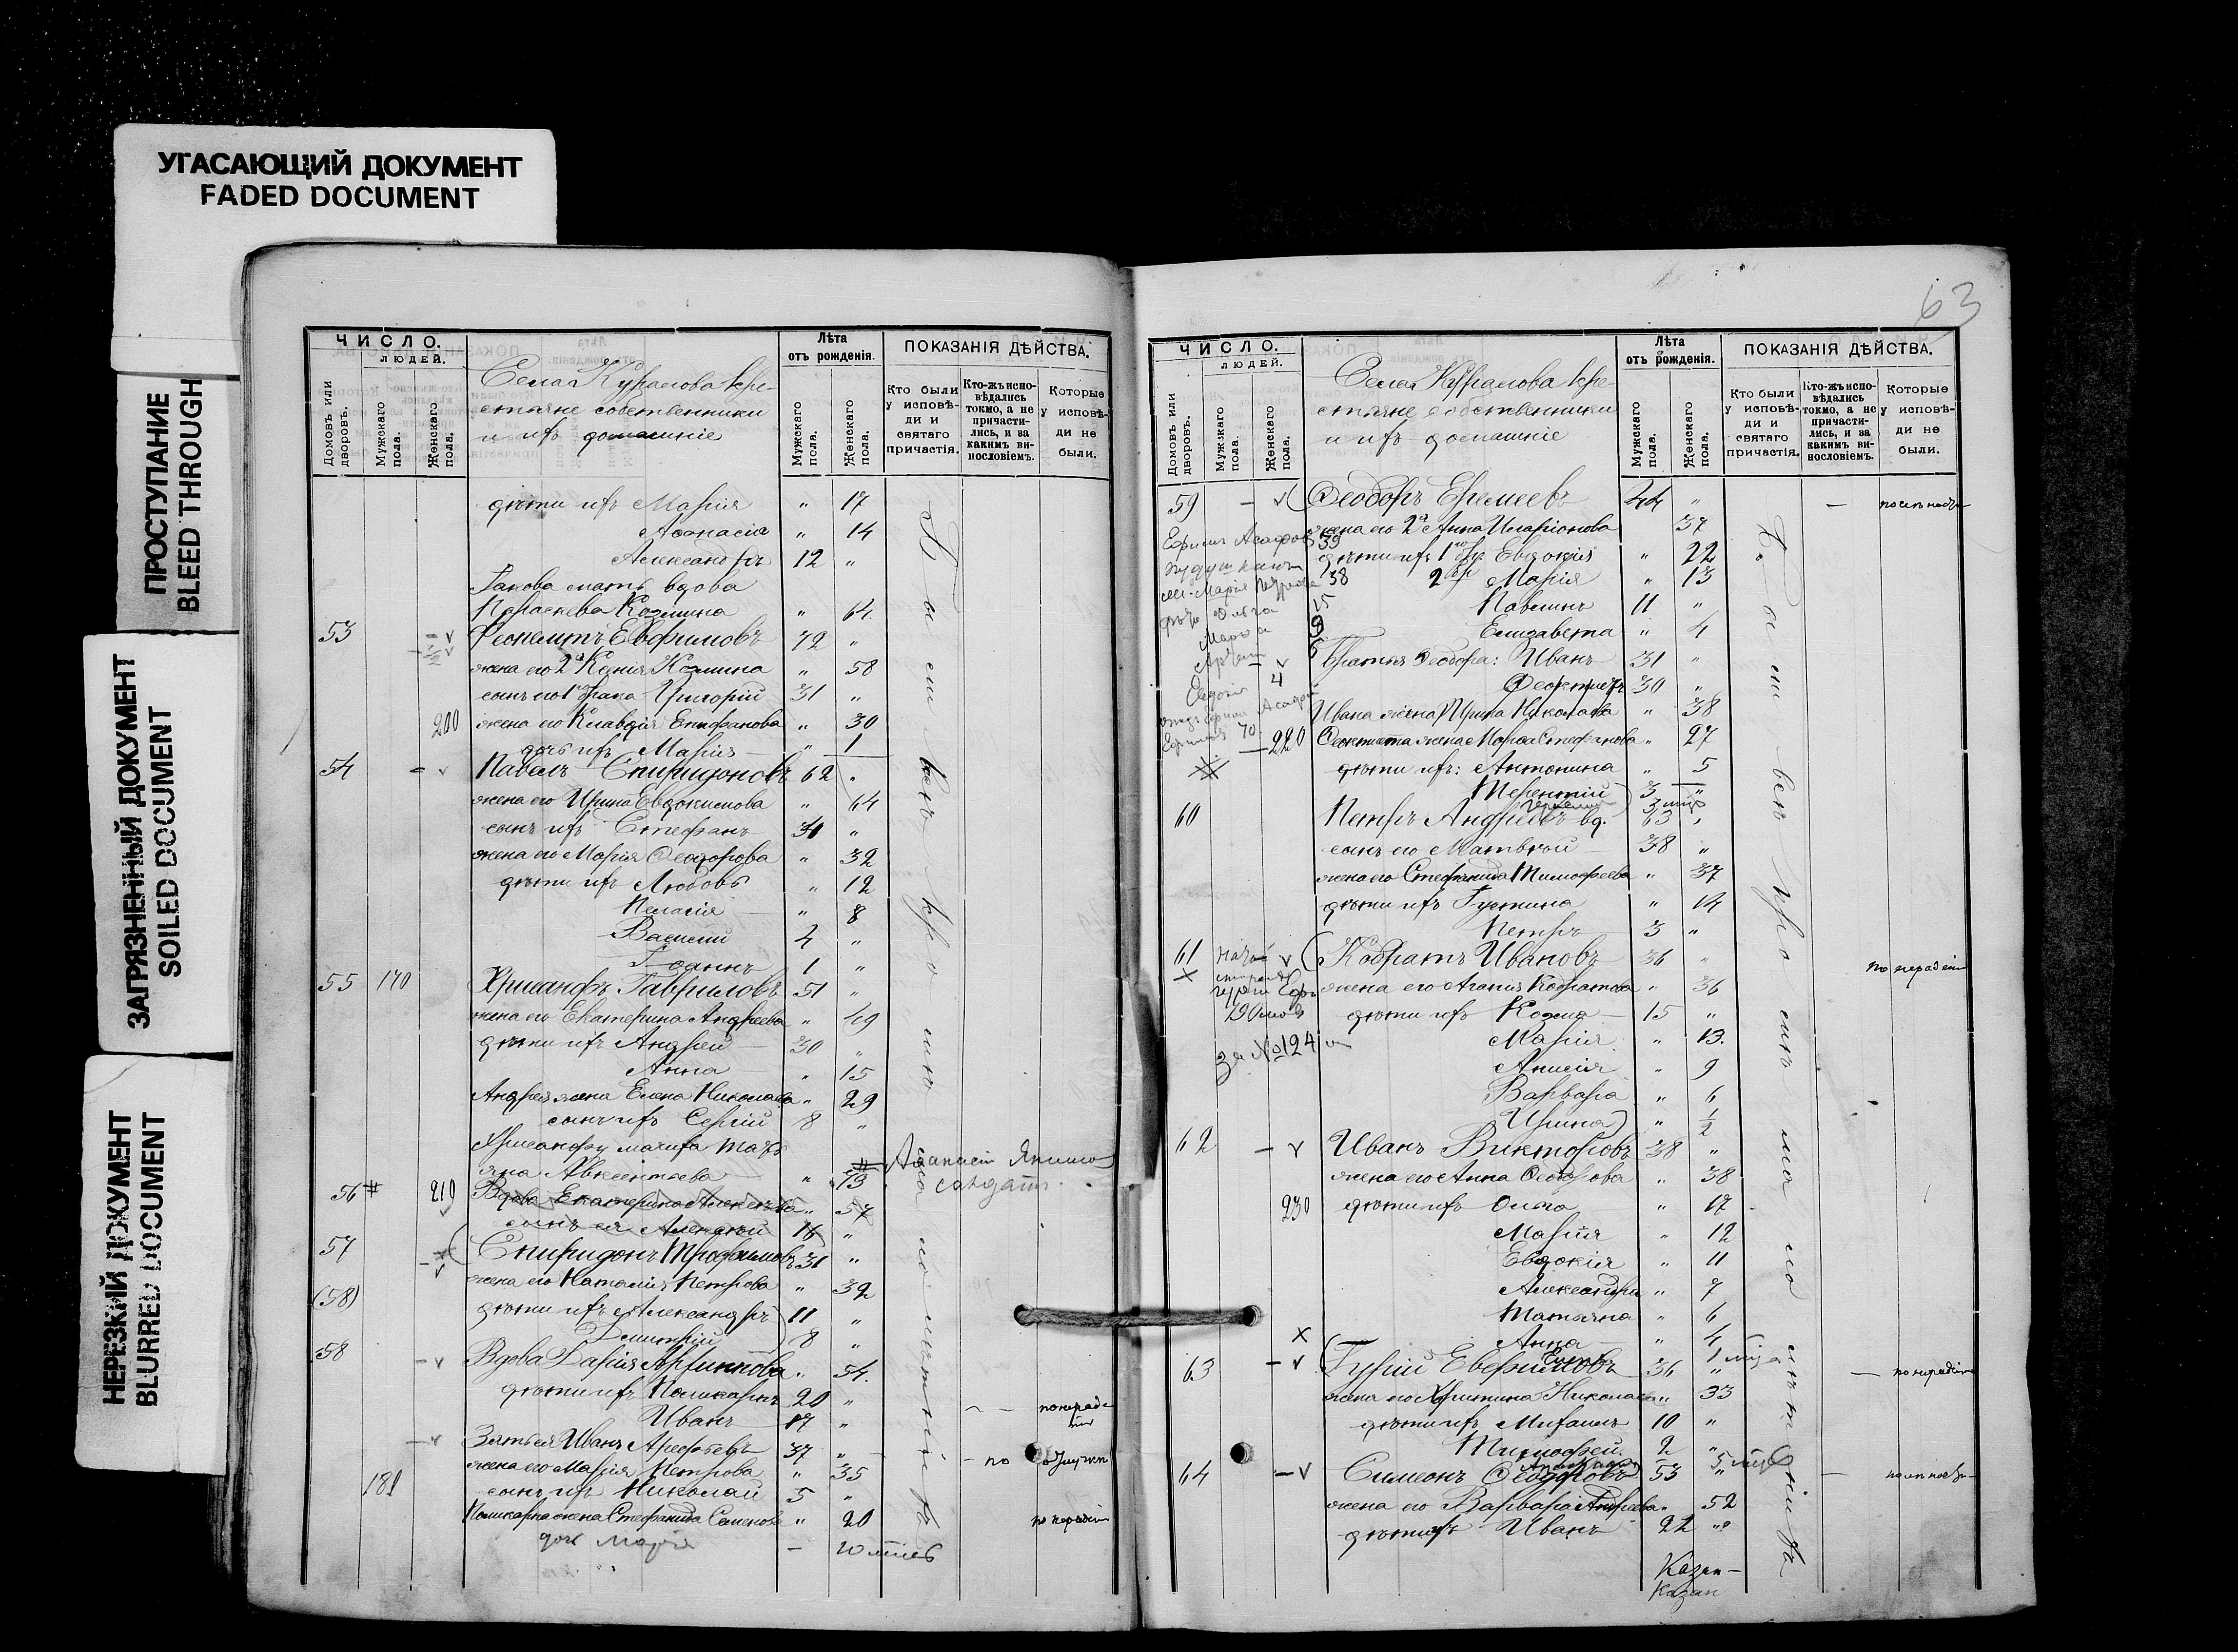 УГАСАЮЩИЙ ДОКУМЕНТ
FADED DOCUMENT
ПРОСТУПАНИЕ
BLEED THROUGH
ЗАГРЯЗНЕННЫЙ ДОКУМЕНТ
SOILED DOCUMENT
НЕРЕЗКИЙ ДОКУМЕНТ
BLURRED DOCUMENT
ЧИСЛО.
ЛЮДЕЙ.
Домовъ или дворовъ.
Мужскаго пола.
Женскаго пола.
Села Куралова кре-
стьяне собственники
и ихъ домашніе
Лѣта
отъ рожденія.
Мужскаго пола.
Женскаго пола.
ПОКАЗАНІЯ ДѢЙСТВА.
Кто были у исповѣ-ди и святаго причастія.
Кто-жъ испо-вѣдались токмо, а не причасти-лись, и за какимъ ви-нословіемъ.
Которые у исповѣ-ди не были.
дѣти ихъ Марія " 17
Аѳанасія " 14
Александръ 12 "
Іакова мать вдова
Параскева Козмина " 64
53 Ѳеоктистъ Евфимовъ 72 "
жена его 2я Ксенія Козмина " 58
сынъ его 1 брака Григорій 31 "
200 жена его Клавдія Епифанова " 30
дочь ихъ Марія " 1
54 Павелъ Спиридоновъ 62 "
жена его Ирина Евдокимова " 64
сынъ ихъ Стефанъ 31 "
жена его Марія Ѳеодорова " 32
дѣти ихъ Любовь " 12
Пелагія " 8
Василій 4 "
Іоаннъ 1 "
55 170 Хрисанфъ Гавриловъ 51 "
жена его Екатерина Андреева " 49
дѣти ихъ Андрей 30 "
Анна " 15
Андрея жена Елена Николаева " 29
сынъ ихъ Сергій 8 "
Хрисанфу мачиха Татъ
яна Авксентьева " 73
# Аѳанасій
солдатъ
56 # 210 Вдова Екатерина Алексѣева " 57
сынъ ея Алексѣй 16 "
57 Спиридонъ Трофимовъ 31 "
жена его Наталія Петрова " 32
(58) дѣти ихъ Александръ 11 "
Димитрій 8 "
58 Вдова Дарія " 54
дѣти ихъ Поликарпъ 20 "
Иванъ 17 " по нераде
нію
Зять ея Иванъ Арефьевъ 37 "
жена его Марія Петрова " 35 по отлучкѣ
181 сынъ ихъ Николай 5 "
Поликарпа жена Стефанида Семенова " 20 по нерадѣнію
дочь Марія – 10 мѣс
Были вси кромѣ малолѣтнихъ
63
ЧИСЛО.
ЛЮДЕЙ.
Домовъ или дворовъ.
Мужскаго пола.
Женскаго пола.
Села Куралова кре-
стьяне собственники
и ихъ домашніе
Лѣта
отъ рожденія.
Мужскаго пола.
Женскаго пола.
ПОКАЗАНІЯ ДѢЙСТВА.
Кто были у исповѣ-ди и святаго причастія.
Кто-жъ испо-вѣдались токмо, а не причасти-лись, и за какимъ ви-нословіемъ.
Которые у исповѣ-ди не были.
59 Ѳеодоръ Еремеевъ 44 "
жена его 2я Анна Иларіонова 37
дѣти ихъ 1го бр. Евдокія " 22
2 бр. Марія " 13
Павелинъ 11 "
Елизавета " 4
Братья Ѳеодора: Иванъ 31 "
Ѳеоктистъ 30 "
Ивана жена Ирина Николаева " 38
220 Ѳеоктиста жена Марѳа Стефанова " 27
дѣти ихъ: Антонина " 5
Терентій 3 "
60 Петръ Андреевъ вд. 63 "
сынъ его Матвѣй 38 "
жена его Стефанида Тимофеева " 37
дѣти ихъ Іустина " 14
Петръ 3 "
61 Кодратъ Ивановъ 36 " по нерадѣнію
жена его Агапія Кодратова " 36
за № 124
дѣти ихъ Козма 15 "
Марія " 13
Анисія " 9
Варвара " 6
Ирина " 1/2
62 Иванъ Викторовъ 38 "
жена его Анна Ѳеодорова " 38
230 дѣти ихъ Ольга " 17
Марія " 12
Евдокія " 11
Александра " 7
Татьяна " 6
Анна " 4
63 Гурій Евфимовъ 36 " по нерадѣнію
жена его Христина Николаева " 33
дѣти ихъ Михаилъ 10 "
Тимофей 2 "
64 Симеонъ Ѳеодоровъ 53 "
жена его Варвара Андреева " 52
дѣти ихъ Иванъ 22 "
Были вси кромѣ малолѣтнихъ
Казан-
Казан